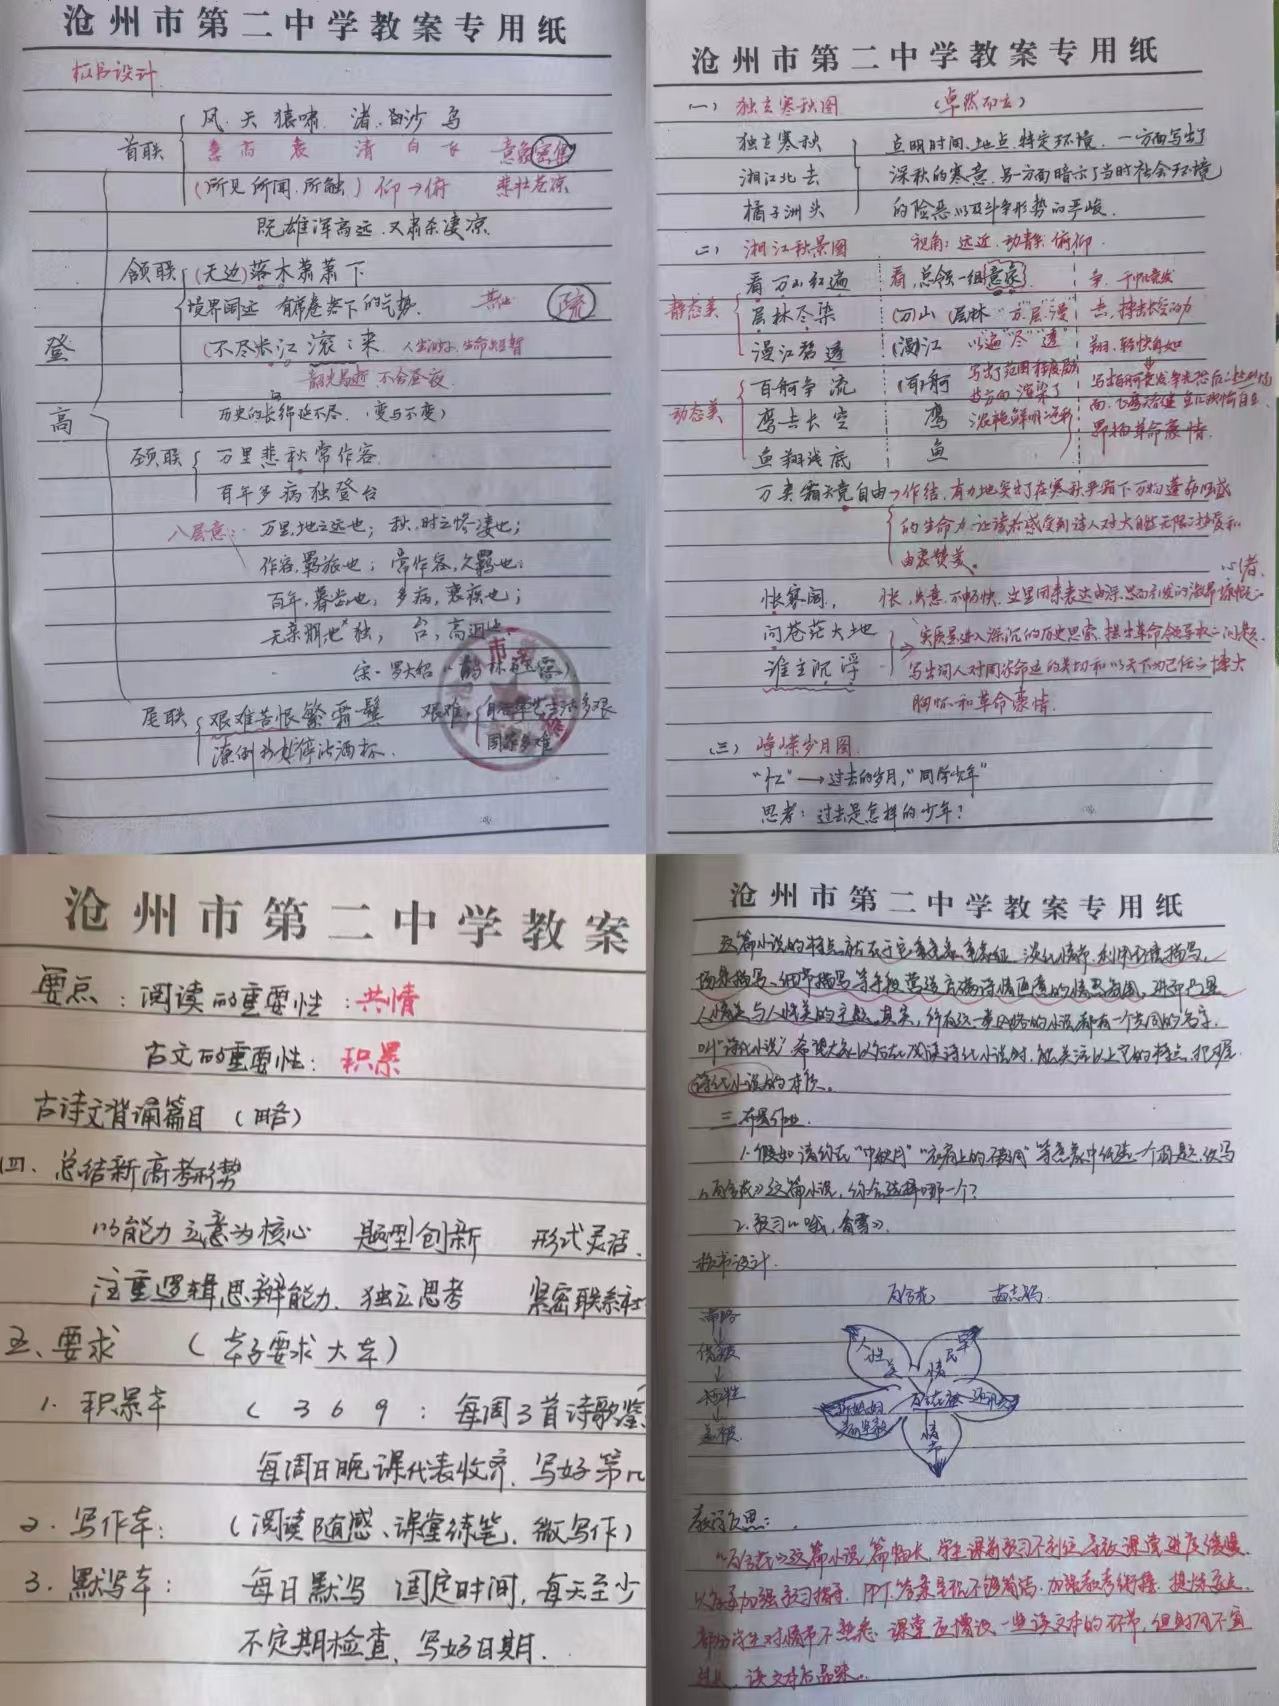 沧州市第二中学教案专用纸
板书设计
风.天 猿啸 渚.白沙 鸟
首联 急 高 哀 清 白 飞 意象密集
(所见.所闻.所触) 仰→俯 悲壮苍凉
既雄浑高远.又肃杀凄凉.
颔联 (无边)落木萧萧下
境界阔远 有席卷天下的气势. 疏
(不尽长江滚滚来 生命短暂
韶光易逝 不舍昼夜.
历史的长绵延不尽. (变与不变)
登高
颈联 万里悲秋常作客.
百年多病独登台
八层意: 万里,地之远也; 秋,时之惨凄也;
作客,羁旅也; 常作客,久羁也;
百年,暮齿也; 多病,衰疾也;
无亲朋也独, 台,高迥也.
宋·罗大经《鹤林玉露》
尾联 艰难苦恨繁霜鬓 艰难
潦倒新停浊酒杯. 国家多难
沧州市第二中学教案专用纸
(一) 独立寒秋图 (卓然而立)
独立寒秋 点明时间、地点、特定环境. 一方面写出了
湘江北去 深秋的寒意,另一方面暗示了当时社会环境
橘子洲头 的险恶以及斗争形势的严峻.
(二) 湘江秋景图 视角: 远近.动静.俯仰.
看万山红遍 看,总领一组意象
静态美 层林尽染 (万)山 (层)林 “万.层.漫” 击,搏击长空的力
漫江碧透 (漫)江 以“遍”“尽”“透” 翔.轻快自如
百舸争流 (百)舸
动态美 鹰击长空 鹰 浓艳鲜明
鱼翔浅底 鱼 革命豪情.
万类霜天竞自由→作结,有力地突出了在寒秋严霜下万物蓬勃旺盛
的生命力,让读者感受到诗人对大自然无限的热爱和
由衷赞美.
怅寥廓, 怅,失意,不畅快.这里用来表达由深思而引发的激昂慷慨的心绪.
问苍茫大地 实质是进入深沉的历史思索,提出革命领导权的问题.
谁主沉浮 写出词人对国家命运的关切和以天下为己任的博大
胸怀和革命豪情.
(三) 峥嵘岁月图
“忆”→过去的岁月,“同学少年”
思考: 过去是怎样的少年?
沧州市第二中学教案
要点:阅读的重要性:共情
古文的重要性:积累
古诗文背诵篇目(略)
四、总结新高考形势
以能力立意为核心 题型创新 形式灵活.
注重逻辑思辨能力、独立思考 紧密联系社
五、要求 (本子要求大本)
1. 积累本 (369:每周3首诗歌鉴
每周日晚课代表收齐.写好第几
2. 写作本: (阅读随感、课堂练笔,微写作)
3. 默写本: 每日默写 固定时间,每天至少
不定期检查、写好日期.
沧州市第二中学教案专用纸
这篇小说的特点就在于它重意象、重象征、淡化情节.利用环境描写、
场景描写、细节描写等手段营造充满诗情画意的情思氛围,进而凸显
人情美与人性美的主题.其实,所有这一类风格的小说都有一个共同的名字,
叫“诗化小说”.希望大家以后在阅读诗化小说时,能关注以上它的特点,把握
诗化小说的本质。
三.布置作业.
1.假如请你在“中秋月”“衣肩上的破洞”等意象中任选一个为题,改写
《百合花》这篇小说,你会选择哪一个?
2.预习《哦,香雪》.
板书设计.
百合花 茹志鹃.
带路
借被
牺牲
盖被
人性美 军民情
百合花
情节
教学反思:
《百合花》这篇小说,篇幅长,学生课前预习不到位,导致课堂进度缓慢.
以后要加强预习指导. PPT答案呈现不够简洁.加强教考衔接.提炼要点.
部分学生对情节不熟悉.课堂应增设一些读文本的环节,但时间不宜
过长.读文本后品味.